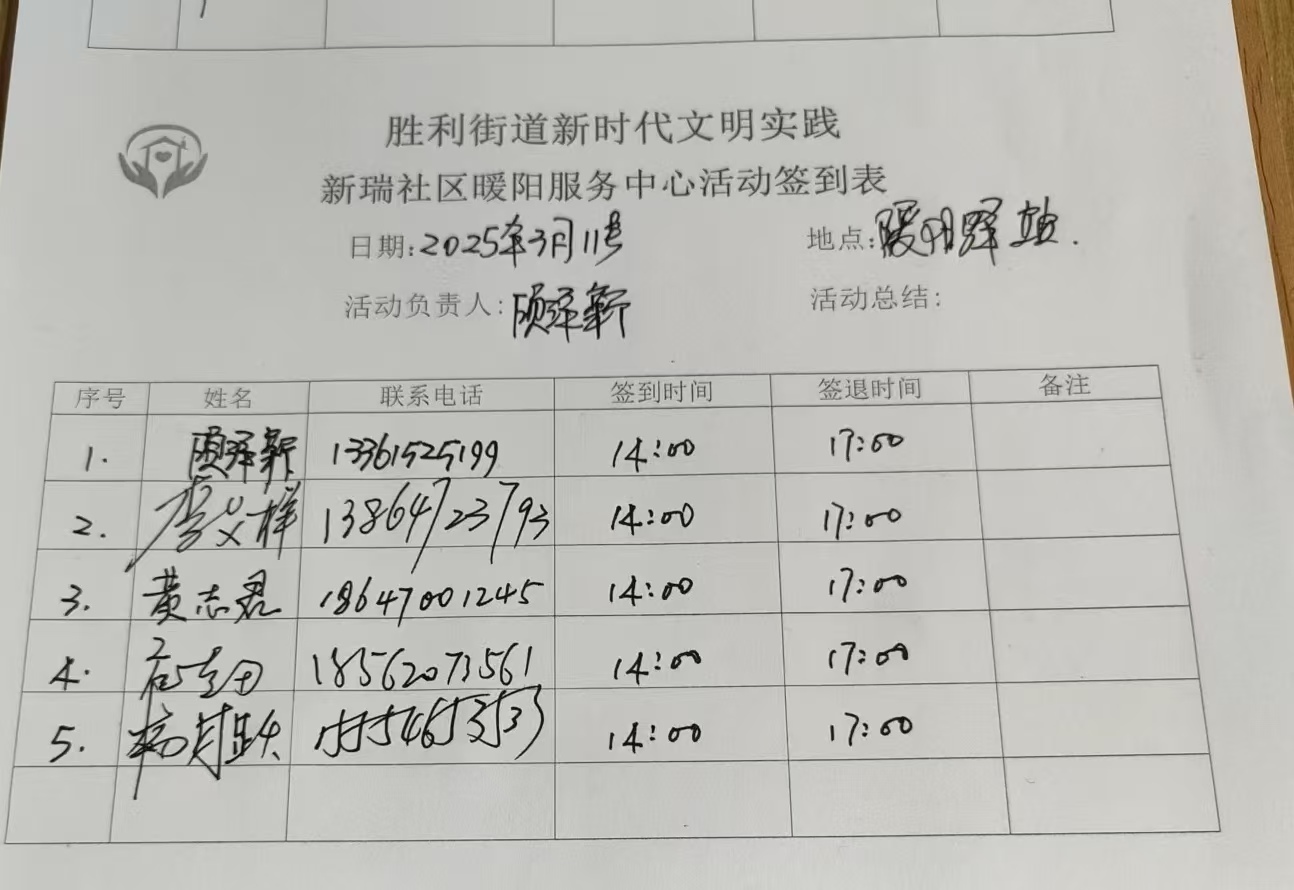 胜利街道新时代文明实践
新瑞社区暖阳服务中心活动签到表
日期:2025年3月11号 地点:暖阳驿站.
活动负责人:顾泽新 活动总结:
序号 姓名 联系电话 签到时间 签退时间 备注
1. 顾泽新 13361525199 14:00 17:00
2. 李义祥 13864723793 14:00 17:00
3. 黄志君 18647001245 14:00 17:00
4. 18562073561 14:00 17:00
5. 14:00 17:00